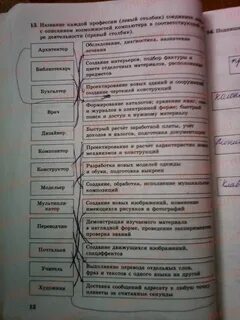 13. Название каждой профессии (левый столбик) соедините линией
с описанием возможностей компьютера в соответствующей
деятельности (правый столбик).
Архитектор
Обследование, диагностика, назначение
лечения
Библиотекарь
Создание интерьеров, подбор фактуры и
цвета отделочных материалов, расстановка
предметов
Бухгалтер
Проектирование новых зданий и сооружений,
создание чертежей конструкций
Врач
Формирование каталогов; хранение книг
и журналов в электронной форме; быстрый
поиск и доступ к нужному материалу
Дизайнер
Быстрый расчёт заработной платы, учёт
доходов и налогов, подготовка документации
Композитор
Проектирование и расчёт
механизмов и конструкций
Конструктор
Разработка новых моделей одежды
и обуви, подготовка выкроек
Модельер
Создание, обработка, исполнение музыкальных
композиций
Мультипли-
катор
Создание новых изображений, изменение
имеющихся рисунков и фотографий
Переводчик
Демонстрация изучаемого материала
в наглядной форме, проведение
проверка знаний
Почтальон
Создание движущихся изображений,
спецэффектов
Учитель
Выполнение перевода отдельных слов,
фраз и текстов с одного языка на другой
Художник
Доставка сообщений адресату в любую точку
планеты за считанные секунды
12